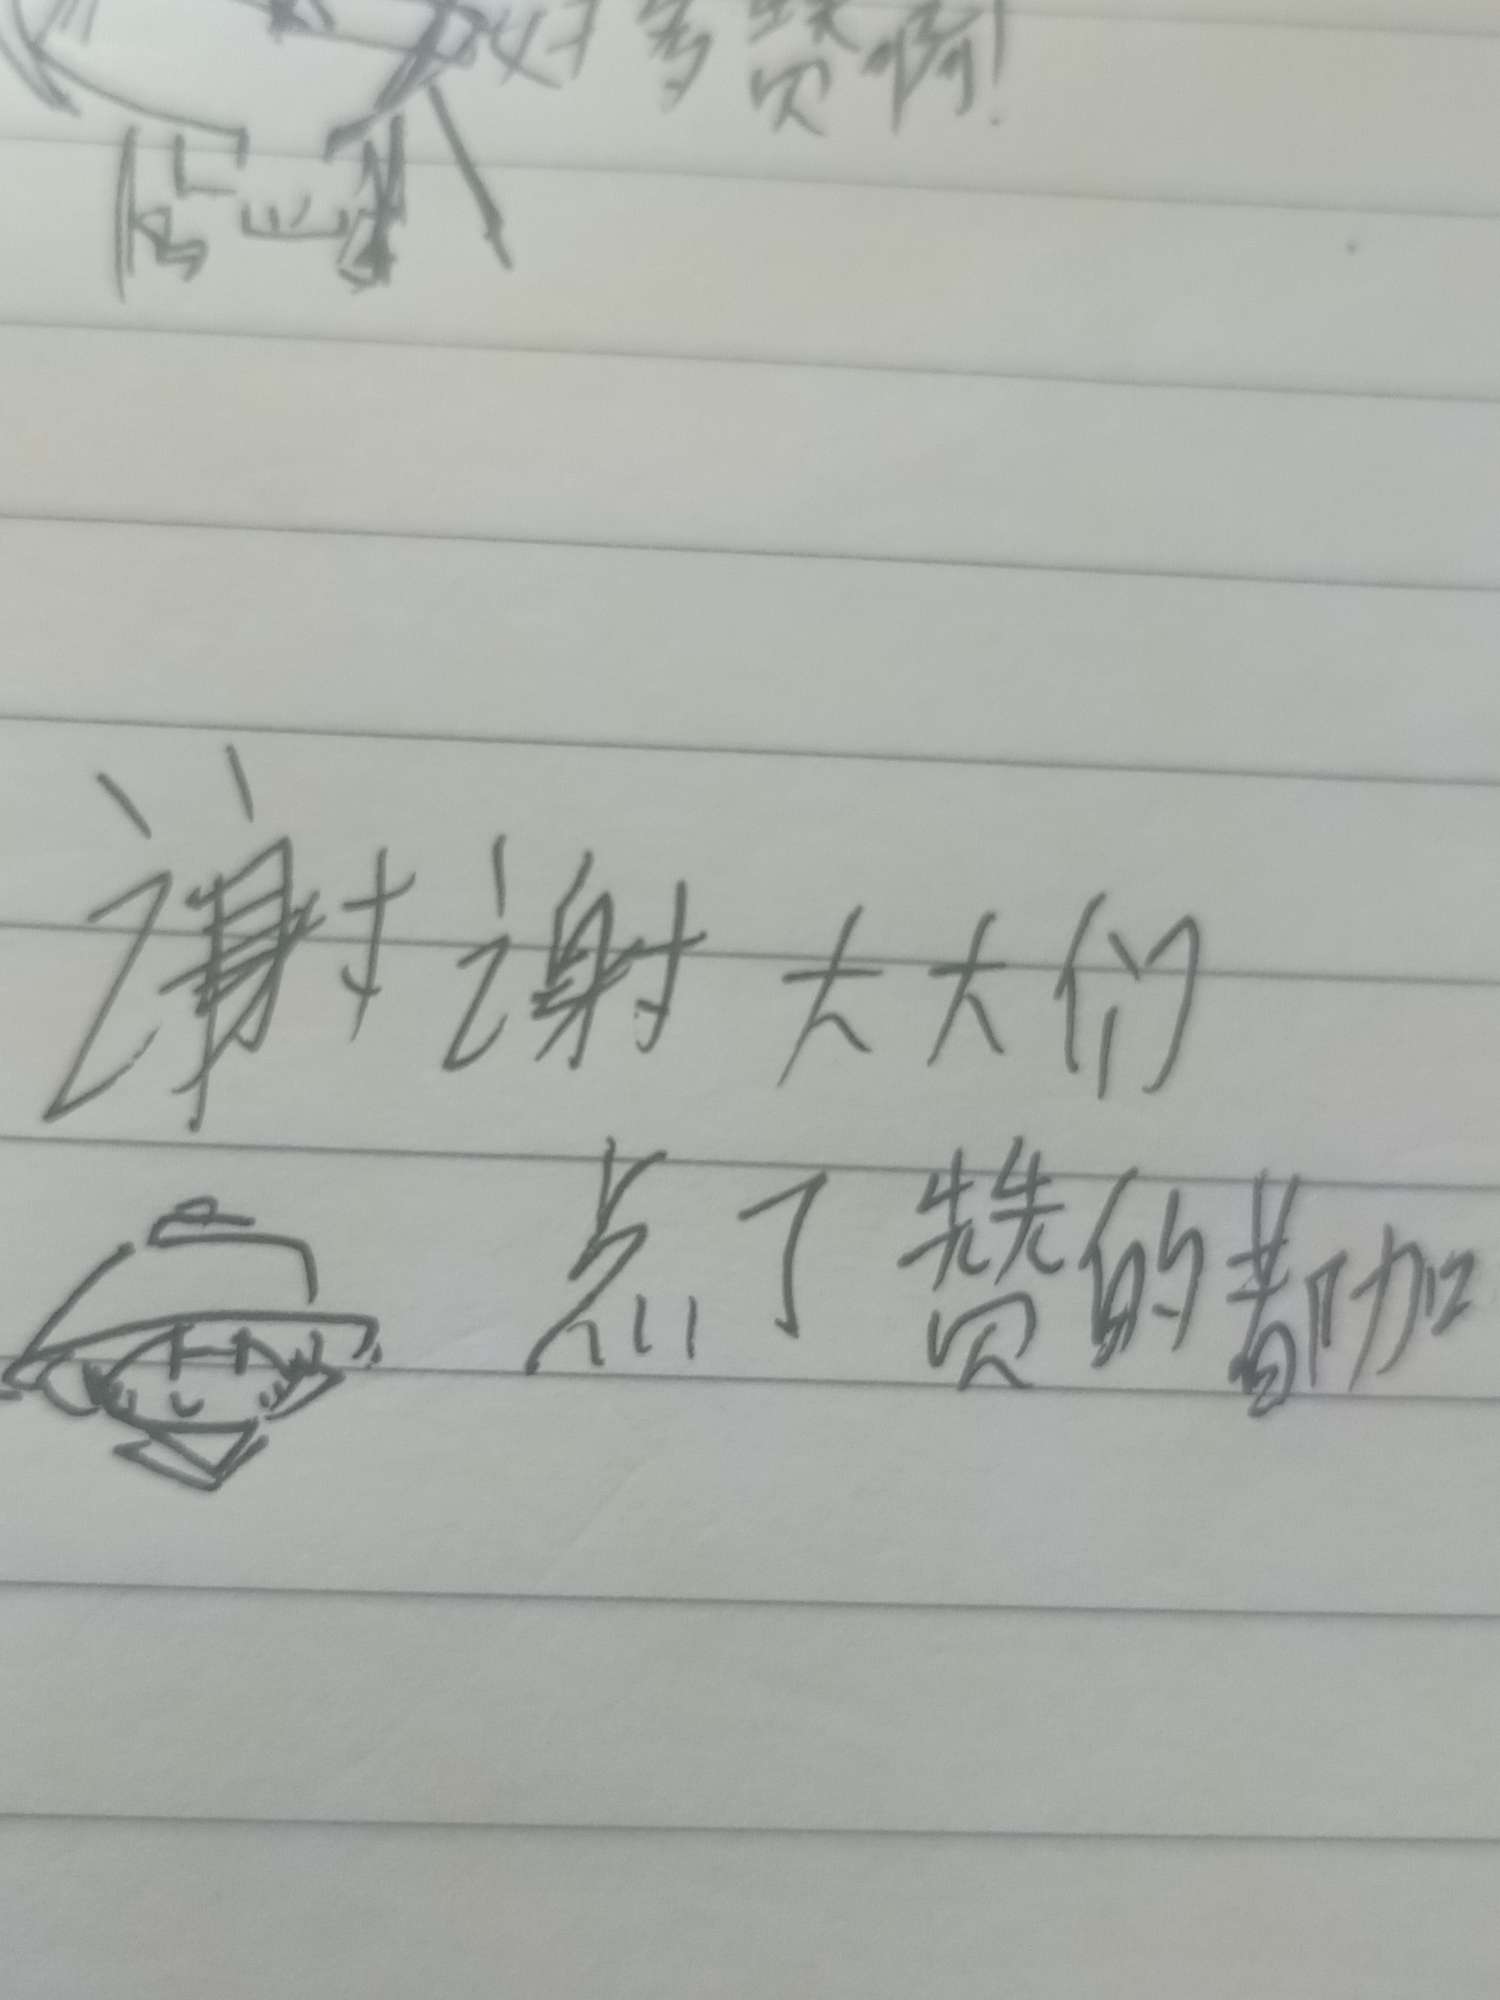 好多赞啊!
谢谢大大们
点了赞的都加